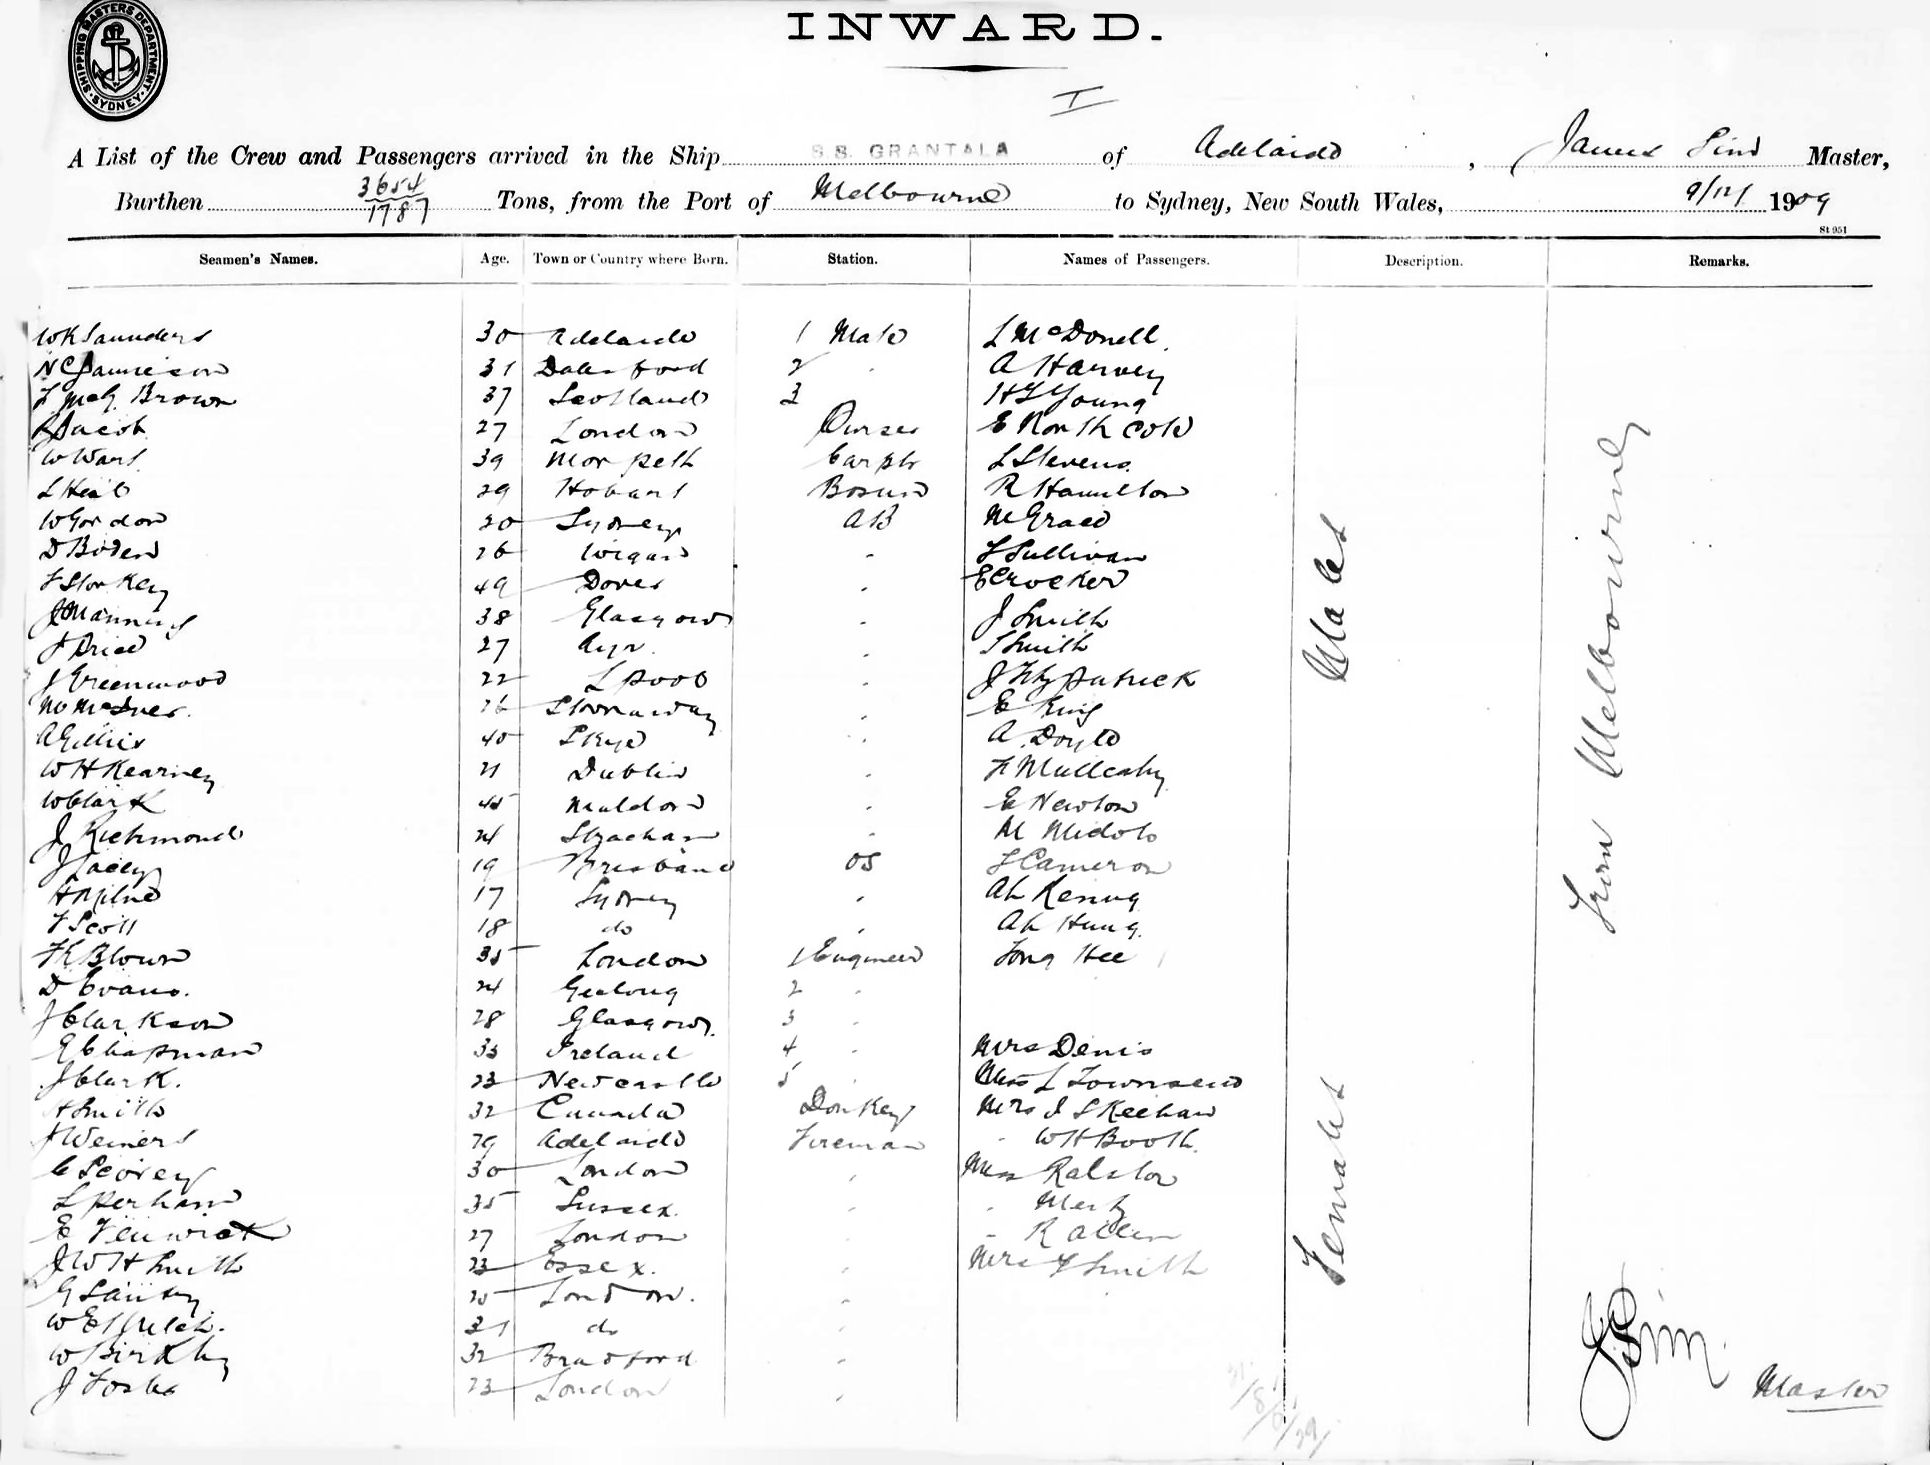 SHIPPING MASTERS DEPARTMENT
SYDNEY
INWARD.
I
A List of the Crew and Passengers arrived in the Ship S.S. GRANTALA of Adelaide, James Sim Master,
Burthen 3654/1787 Tons, from the Port of Melbourne to Sydney, New South Wales, 9/12/1909
St 951
Seamen's Names. Age. Town or Country where Born. Station. Names of Passengers. Description. Remarks.
W K Saunders 30 Adelaide 1 Mate L McDonell
N C Jamieson 31 2 A Harvey
L McG. Brown 37 Scotland 3 H L Young
R Jacob 27 London Purser E Northcote
W Ward 39 Morpeth Carptr L Stevens
29 Hobart Bosun R Hamilton
W Gordon 20 Sydney AB M Grace
D Boden 26 Wigan " L Sullivan
F Storkey 49 Dover " E Crocker
J Manning 38 Glasgow " J Smith
J Price 27 Ayr " S Smith
J Greenwood 22 L pool " J Fitzpatrick
26 Stornaway " E King
A Gillies 40 Skye " A Doyle
W H Kearney 21 Dublin " F Mullcahy
W Clark 45 Maldon " E Newton
J Richmond 24 Strachan " M
J Lacey 19 Brisbane OS L Cameron
H Milne 17 Sydney " Ah
F Scott 18 do " Ah Hung
F K Blown 35 London 1 Engineer Tong Hee
D Evans 24 Geelong 2 "
J Clarkson 28 Glasgow 3 "
E Chapman 33 Ireland 4 " Mrs Denis
J Clark 23 Newcastle 5 Miss L Townsend
H Smith 32 Canada Donkey Mrs J S Keehan
J Weiners 29 Adelaide Fireman " W H Booth
C Scovey 30 London " Miss Ralston
L Perham 35 Sussex " "
E Fenwick 27 London " " R Allen
J W H Smith 23 Essex " Mrs F Smith
G 25 London "
W E 31 do "
W Birkby 32 Bradford "
J Foster 23 London "
Males
Females
From Melbourne
J Sim
Master